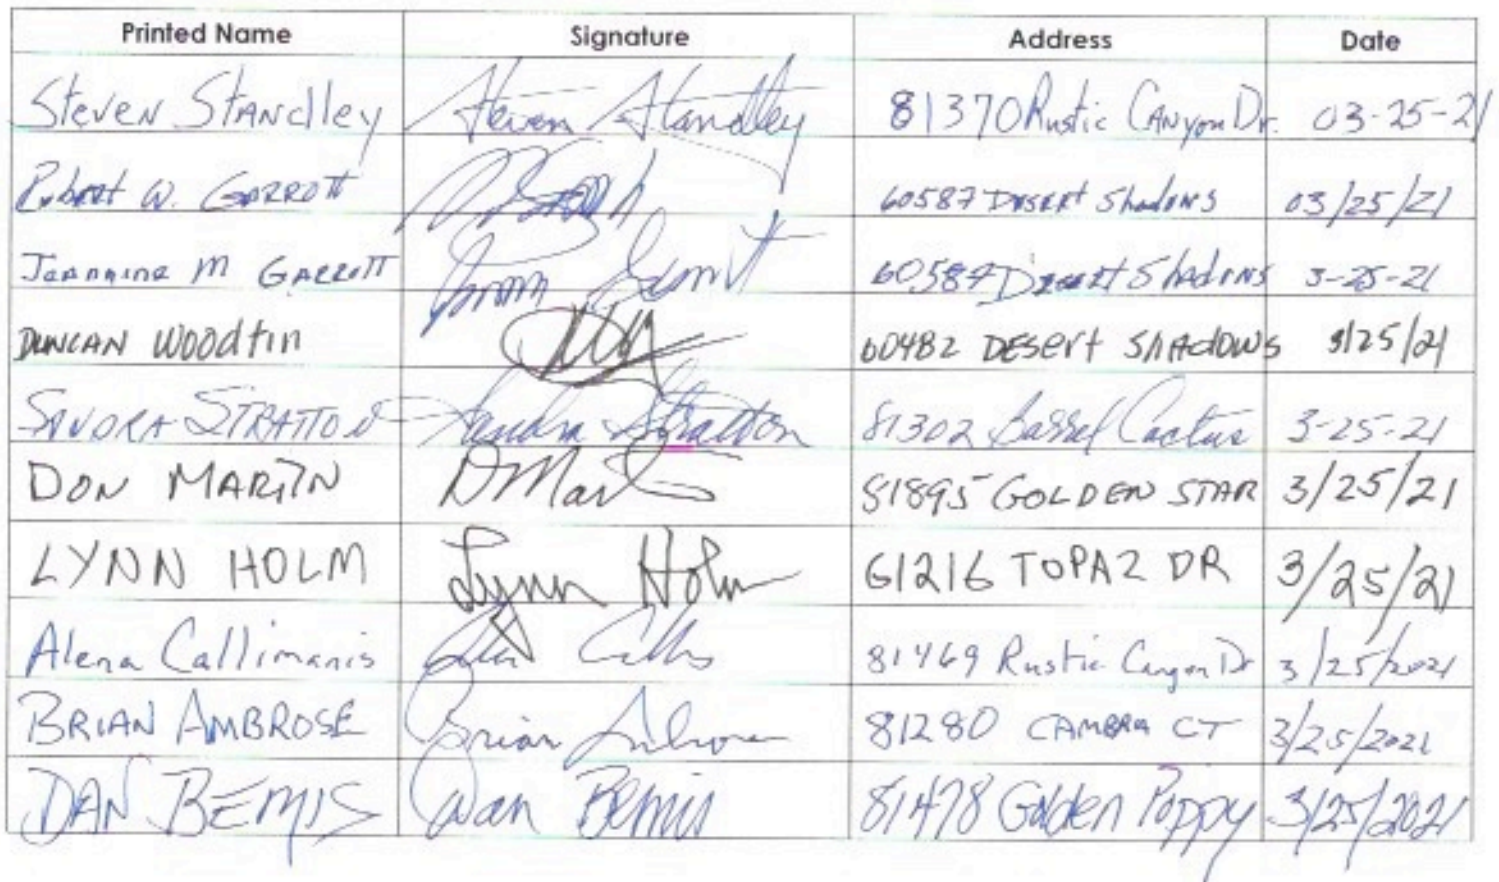 Printed Name Signature Address Date
Steven Standley Steven Standley 81370 Rustic Canyon Dr. 03-25-21
Robert W. Garrott 60587 Desert Shadows 03/25/21
Jeannine M Garrott 60587 Desert Shadows 3-25-21
Duncan Woodfin 60482 Desert Shadows 3/25/21
Sandra Stratton Sandra Stratton 81302 Barrel Cactus 3-25-21
DON MARTIN D Mart 81895 GOLDEN STAR 3/25/21
LYNN HOLM Lynn Holm 61216 TOPAZ DR 3/25/21
Alena Callimanis 81469 Rustic Canyon Dr 3/25/2021
BRIAN AMBROSE Brian Ambrose 81280 CAMBRIA CT 3/25/2021
DAN BEMIS Dan Bemis 81478 Golden Poppy 3/25/2021